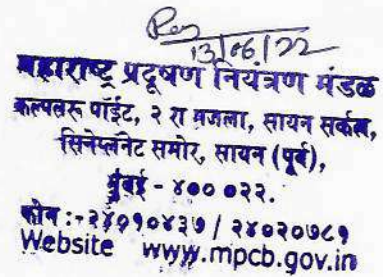 13/06/22
महाराष्ट्र प्रदूषण नियंत्रण मंडळ
कल्पतरू पॉईंट, २ रा मजला, सायन सर्कल,
सिनेप्लॅनेट समोर, सायन (पूर्व),
मुंबई - ४०० ०२२.
फोन :-२४०१०४३७ / २४०२०७८१
Website www.mpcb.gov.in